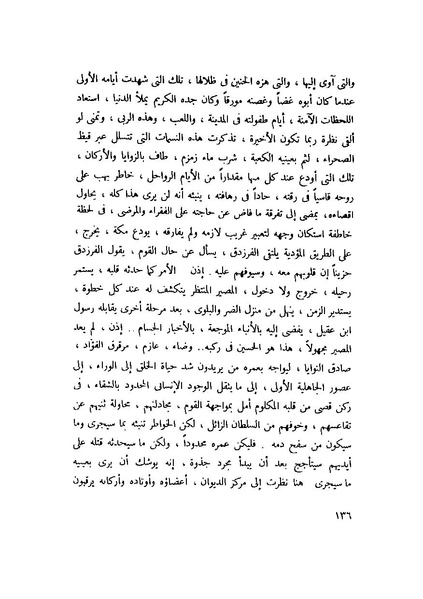 والتى آوى إليها ، والتى هزه الحنين فى ظلالها ، تلك التى شهدت أيامه الأولى
عندما كان أبوه غضاً وغصنه مورقاً وكان جده الكريم يملأ الدنيا ، استعاد
اللحظات الآمنة ، أيام طفولته فى المدينة ، واللعب ، وهذه الربى ، وتمنى لو
ألقى نظرة ربما تكون الأخيرة ، تذكرت هذه النسمات التى تتسلل عبر قيظ
الصحراء ، لثم بعينيه الكعبة ، شرب ماء زمزم ، طاف بالزوايا والأركان ،
تلك التى أودع عند كل منها مقداراً من الأيام الرواحل ، خاطر يهب على
روحه قاسياً فى رقته ، حاداً فى رهافته ، ينبئه أنه لن يرى هذا كله ، يحاول
اقصاءه، يمضى إلى تفرقة ما فاض عن حاجته على الفقراء والمرضى ، فى لحظة
خاطفة استكان وجهه لتعبير غريب لازمه ولم يفارقه ، يودع مكة ، يخرج ،
على الطريق المؤدية يلتقى الفرزدق ، يسأل عن حال القوم ، يقول الفرزدق
حزيناً إن قلوبهم معه ، وسيوفهم عليه . إذن الأمر كما حدثه قلبه ، يستمر
رحيله ، خروج ولا دخول ، المصير المنتظر ينكشف له عند كل خطوة ،
يستدير الزمن ، ينهل من منزل الضر والبلوى ، بعد مرحلة أخرى يقابله رسول
ابن عقيل ، يفضى إليه بالأنباء الموجعة ، بالأخبار الجسام .. إذن ، لم يعد
المصير مجهولاً ، هذا هو الحسين فى ركبه.. وضاء ، عازم ، مرقرق الفؤاد ،
صادق النوايا ، ليواجه بعمره من يريدون شد حياة الخلق إلى الوراء ، إلى
عصور الجاهلية الأولى ، إلى ما يثقل الوجود الإنسانى المحدود بالشقاء ، فى
ركن قصى من قلبه المكلوم أمل بمواجهة القوم ، مجادلتهم ، محاولة ثنيهم عن
تقاعسهم ، وخوفهم من السلطان الزائل ، لكن الخواطر تنبئه بما سيجرى وما
سيكون من سفح دمه . فليكن عمره محدوداً ، ولكن ما سيحدثه قتله على
أيديهم سيتأجج بعد أن يبدأ مجرد جذوة ، إنه يوشك أن يرى بعينيه
ما سيجرى هنا نظرت إلى مركز الديوان ، أعضاؤه وأوتاده وأركانه يرقبون
١٣٦